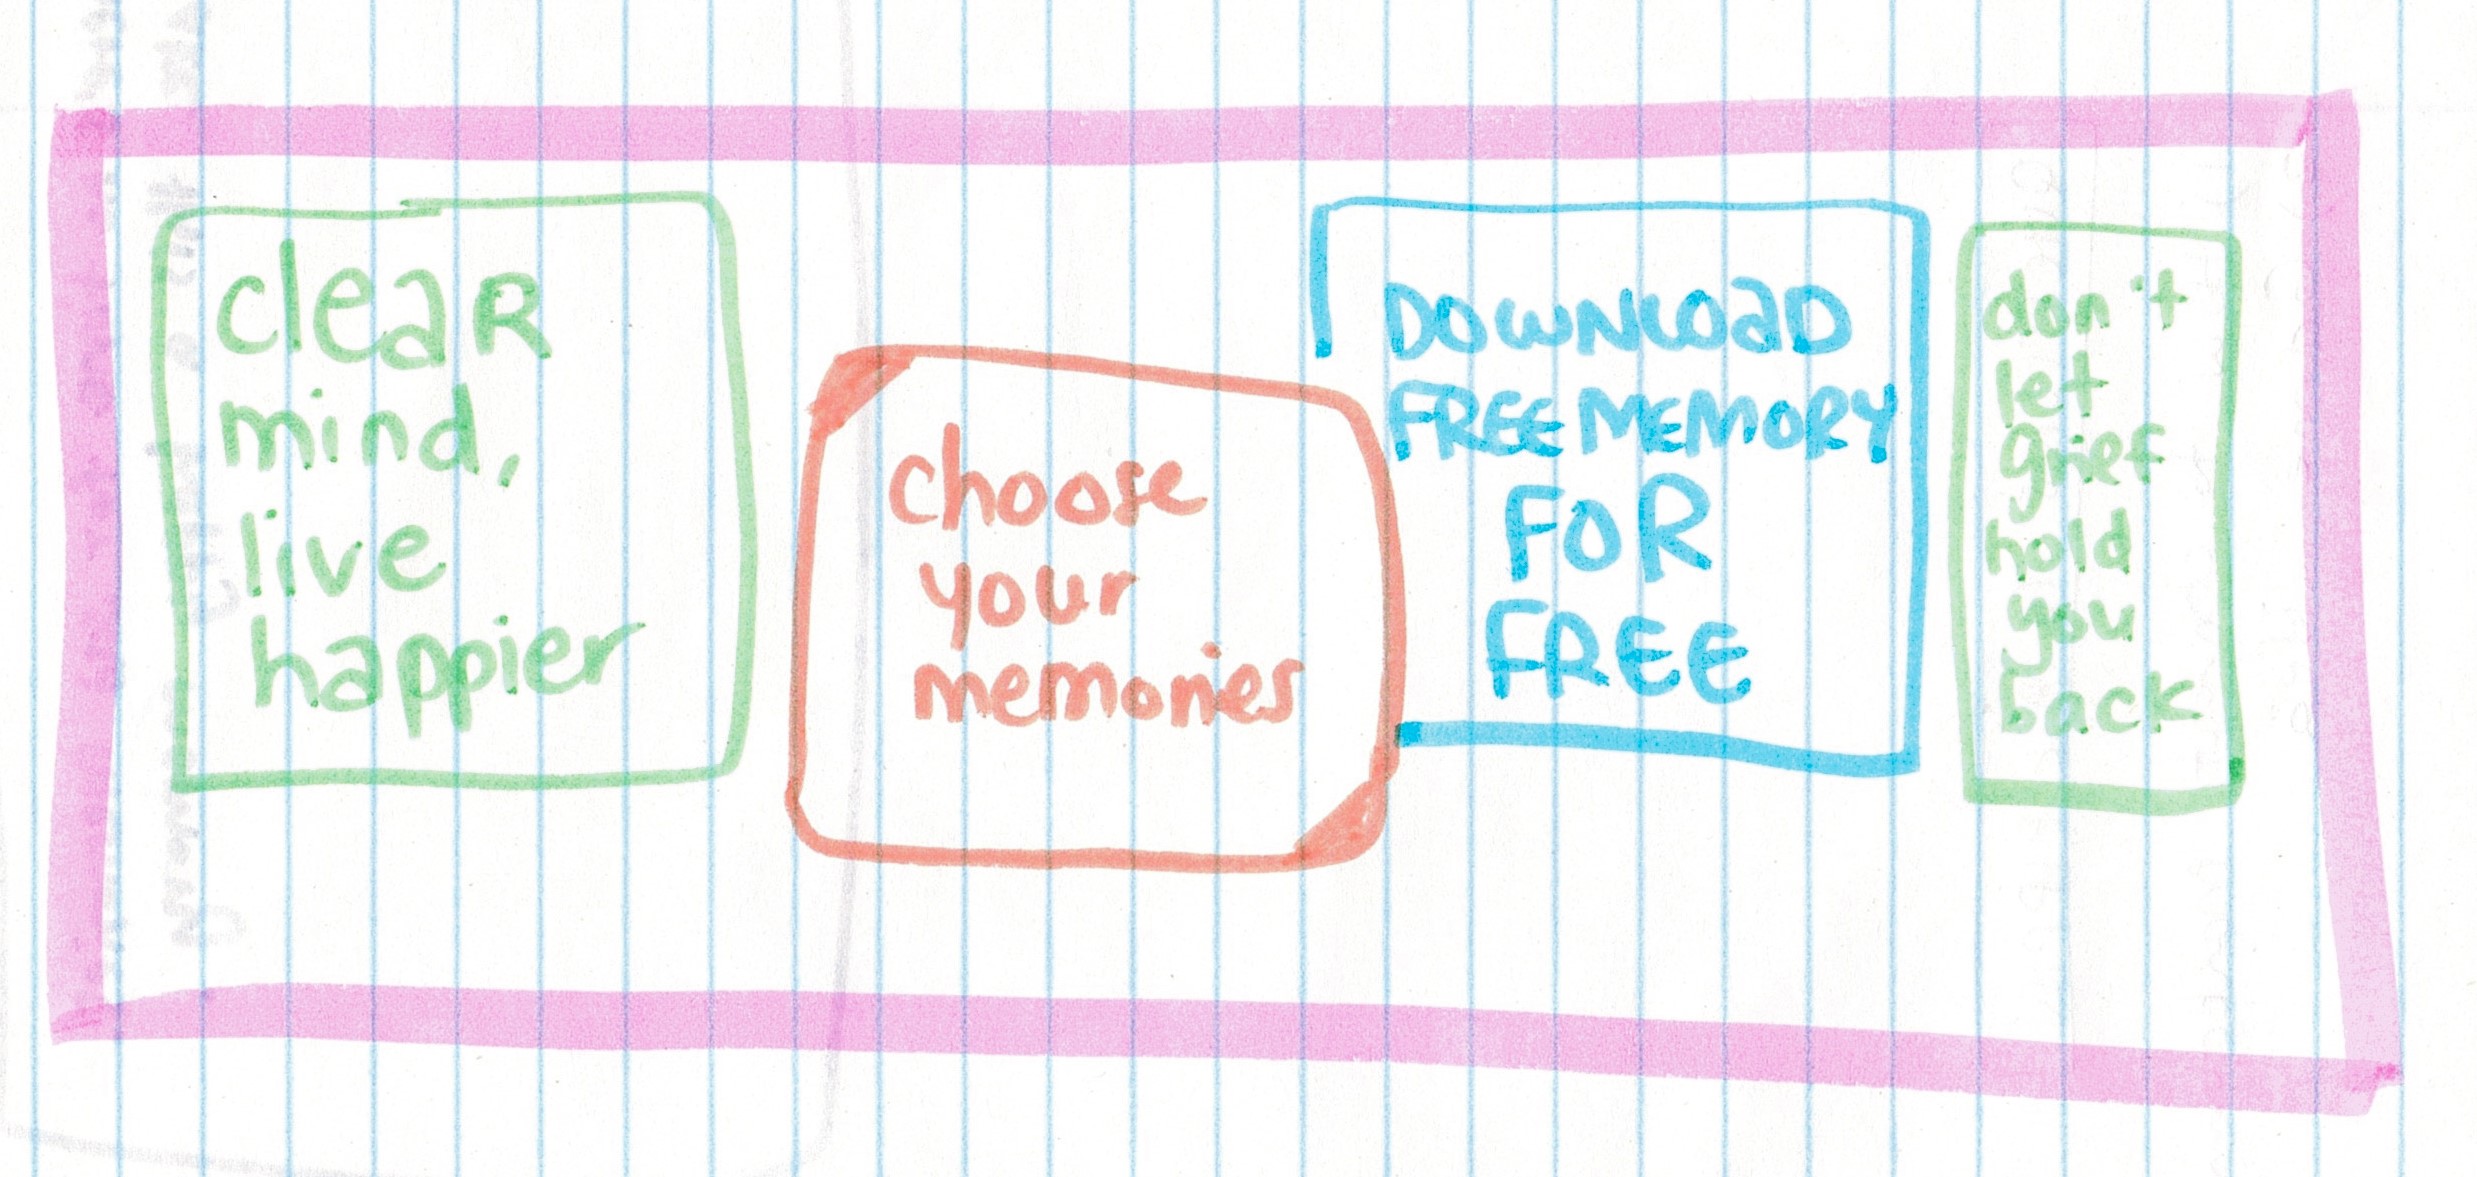 cleaR
mind,
live
happier
choose
your
memories
DOWNLOaD
FREE MEMORY
FOR
FREE
don't
let
grief
hold
you
back